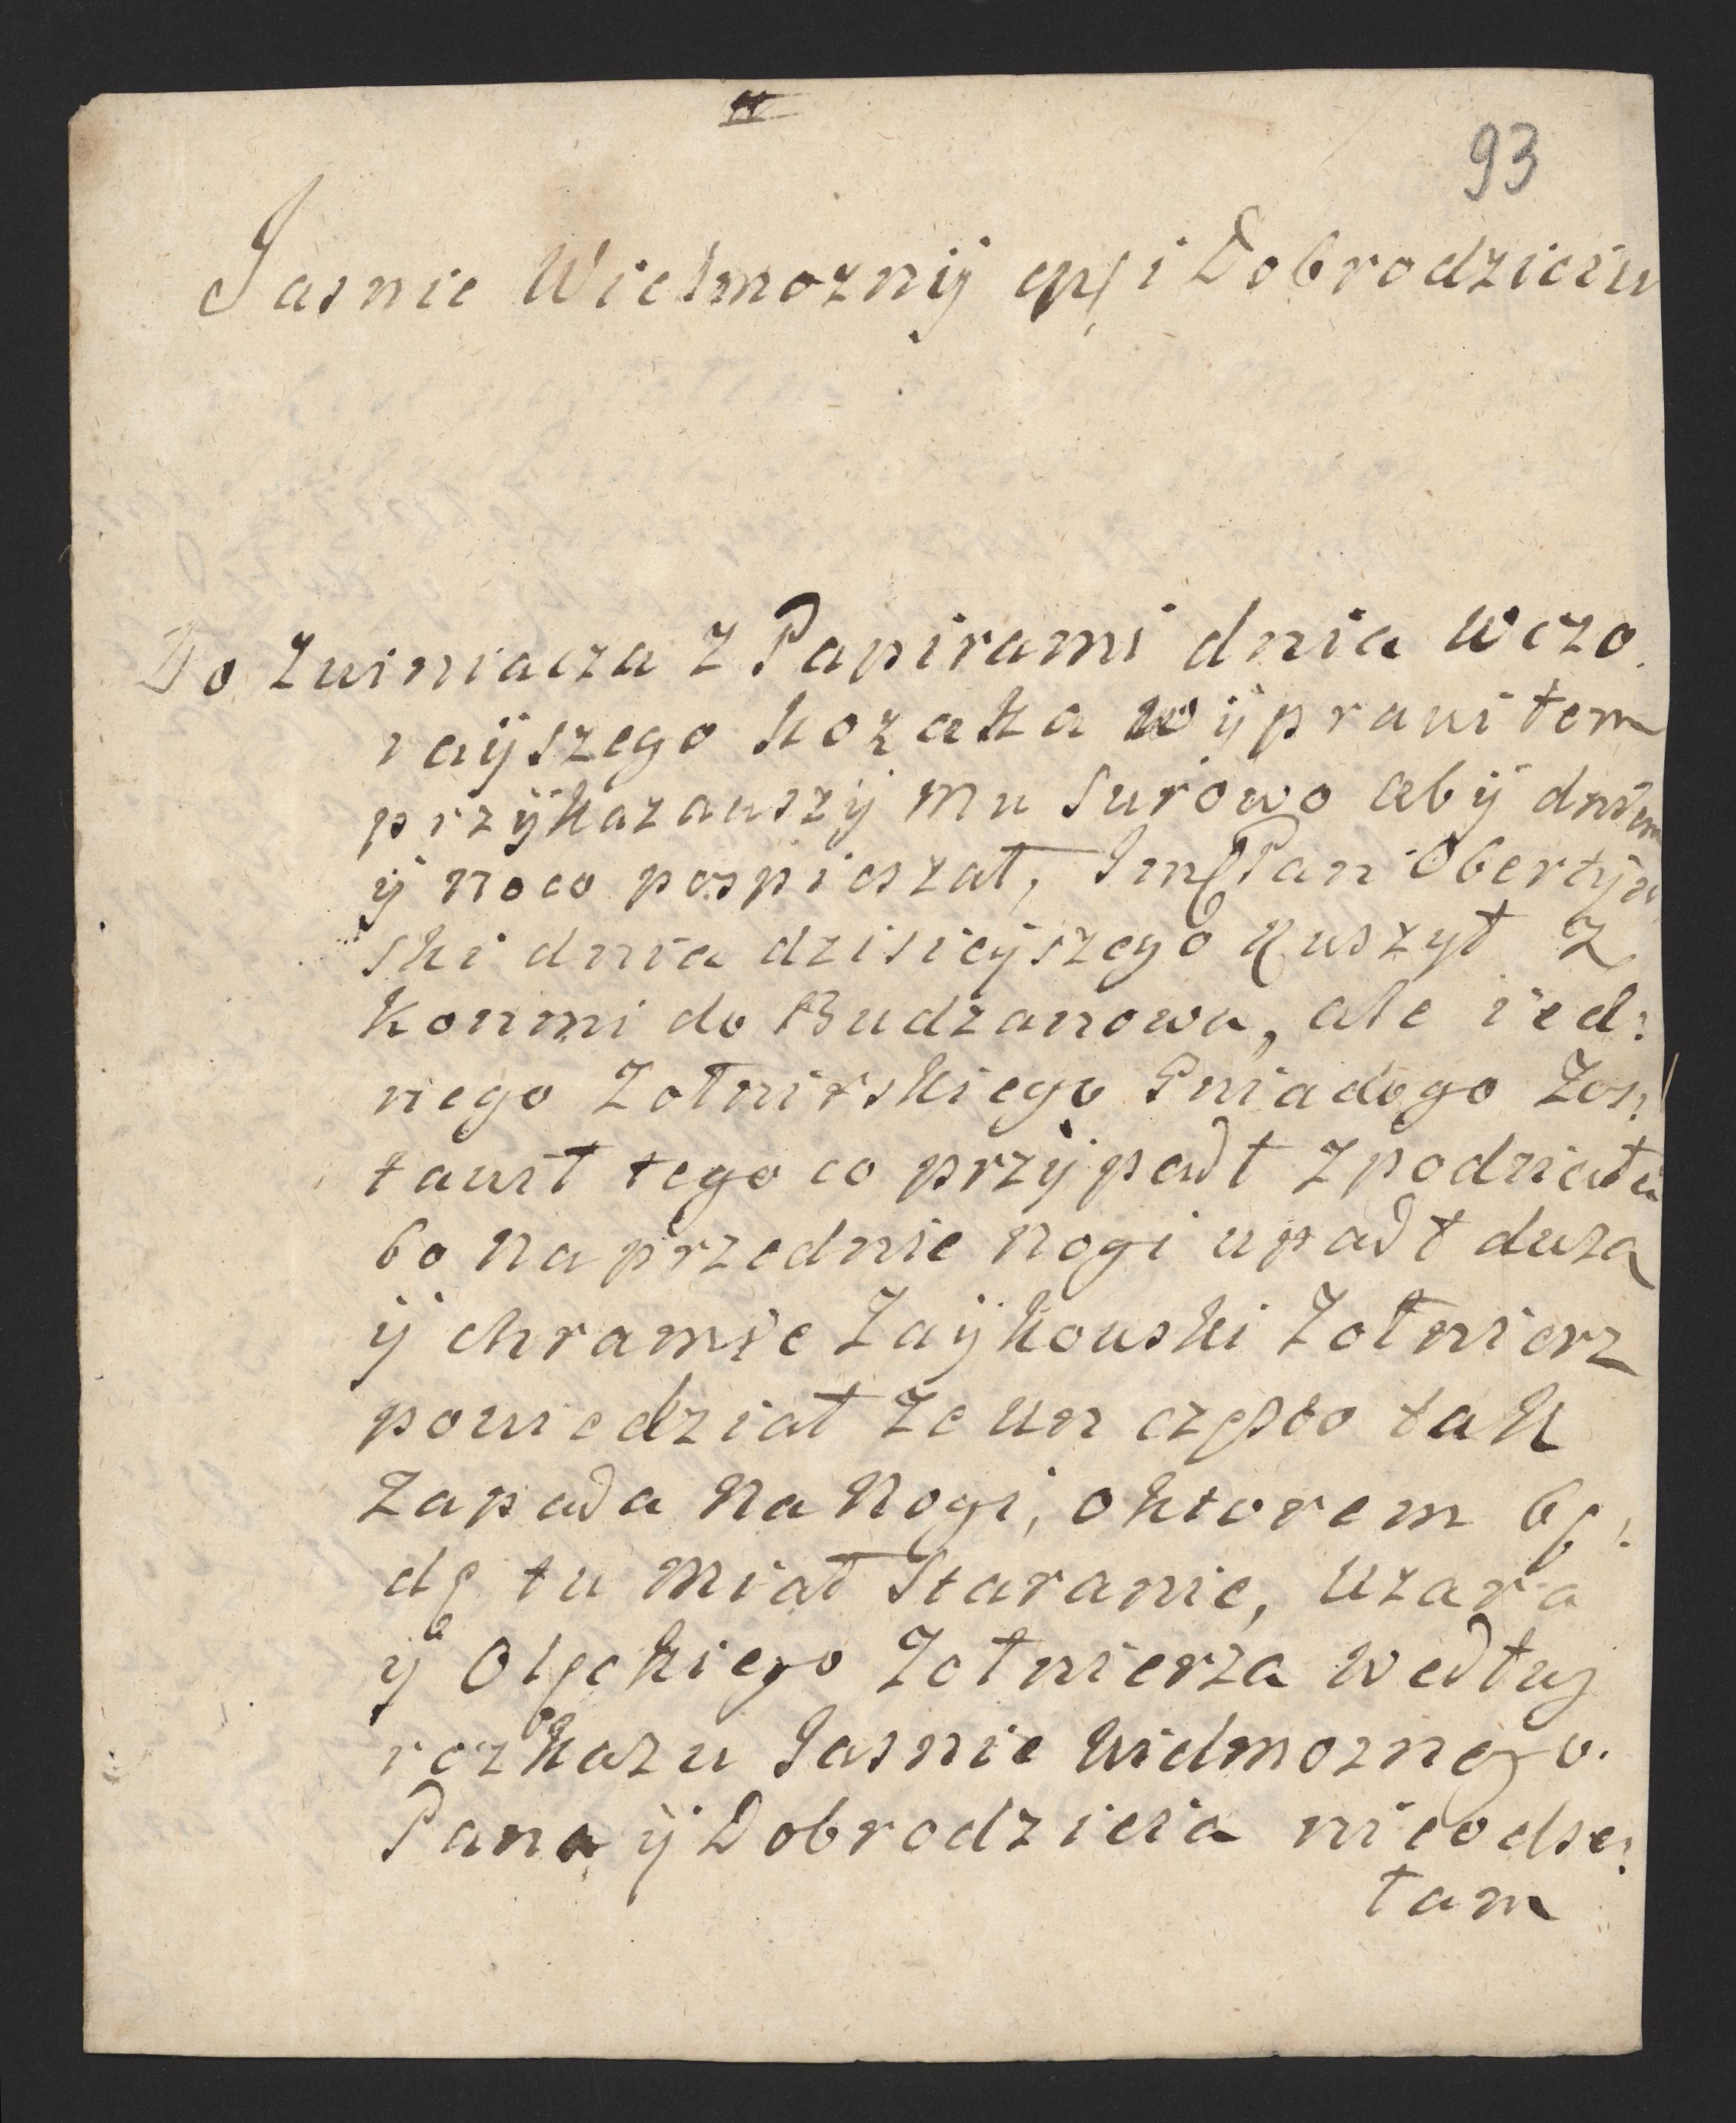 93
Jasnie Wielmoznÿ i Dobrodzieiu
Do Zwiniacza z Papirami dnia wczo
rayszego kozaka wÿprawiłem
przÿkazawszÿ mu surowo abÿ dniem
ÿ noco pospieszał, Jmę Pan Obertÿn
ski dnia dzisieÿszego Ruszył z
konmi do Budzanowa, ale ied:
nego Zołnirskiego Gniadego Zos:
tawił tego co przÿpadł z podziału
bo na przednie nogi upadł duza
ÿ chramie Zaÿkowski Zołnierz
powiedział ze un często tak
Zapada na Nogi, oktorem bę:
dę tu miał Staranie, uzara
ÿ Olęckiego Zołnierza według
rozkazu Jasnie Wielmoznego
Pana ÿ Dobrodzieia nieodse:
łam